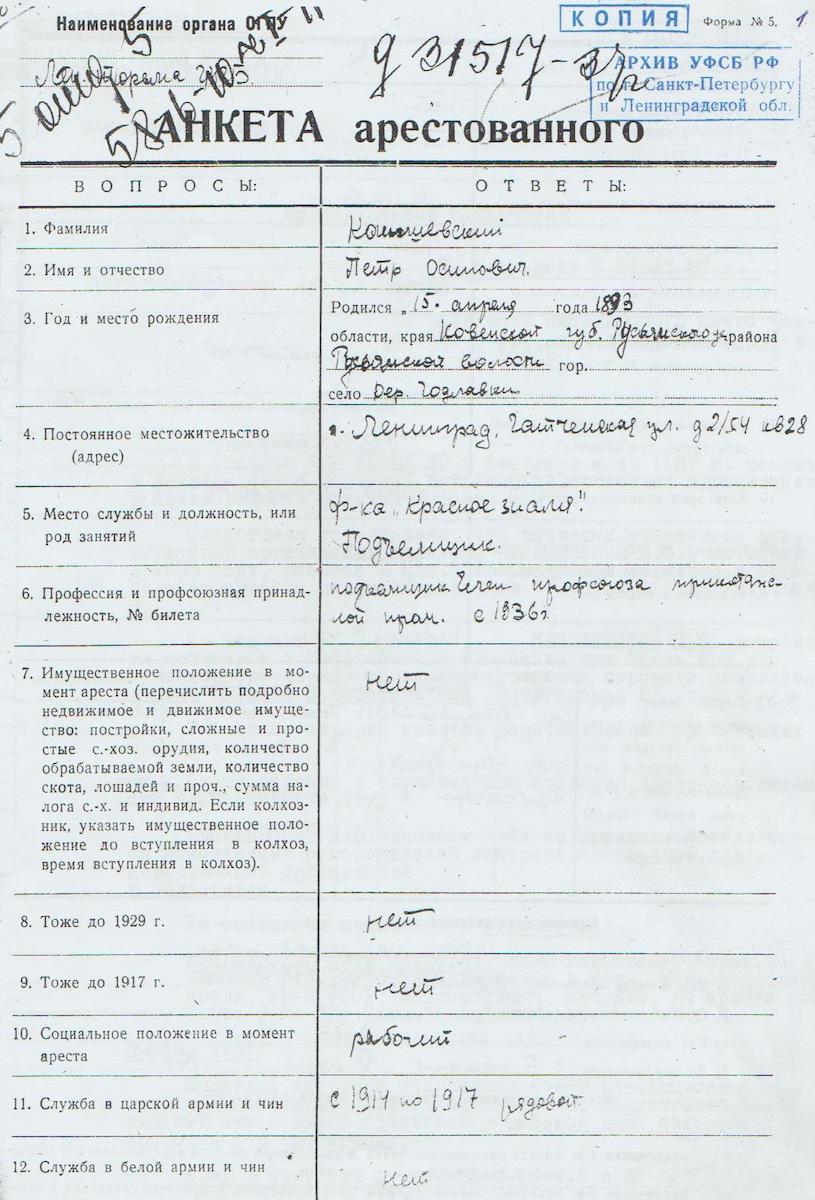 Наименование органа ОГПУ
КОПИЯ
Форма № 5.
1
АРХИВ УФСБ РФ
по г. Санкт-Петербургу
и Ленинградской обл.
АНКЕТА арестованного
ВОПРОСЫ: ОТВЕТЫ:
1. Фамилия
2. Имя и отчество Петр Осипович.
3. Год и место рождения Родился „15" апреля года 1893
области, края Ковенской губ. района
волости гор.
село дер.
4. Постоянное местожительство Ленинград, Гатчинская ул. д 2/54 кв 28
(адрес)
5. Место службы и должность, или ф-ка „Красное знамя".
род занятий
6. Профессия и профсоюзная принад- член профсоюза
лежность, № билета с 1936 г.
7. Имущественное положение в мо- нет
мент ареста (перечислить подробно
недвижимое и движимое имуще-
ство: постройки, сложные и про-
стые с.-хоз. орудия, количество
обрабатываемой земли, количество
скота, лошадей и проч., сумма на-
лога с.-х. и индивид. Если колхоз-
ник, указать имущественное поло-
жение до вступления в колхоз,
время вступления в колхоз).
8. Тоже до 1929 г. нет
9. Тоже до 1917 г. нет
10. Социальное положение в момент рабочий
ареста
11. Служба в царской армии и чин с 1914 по 1917 рядовой
12. Служба в белой армии и чин нет